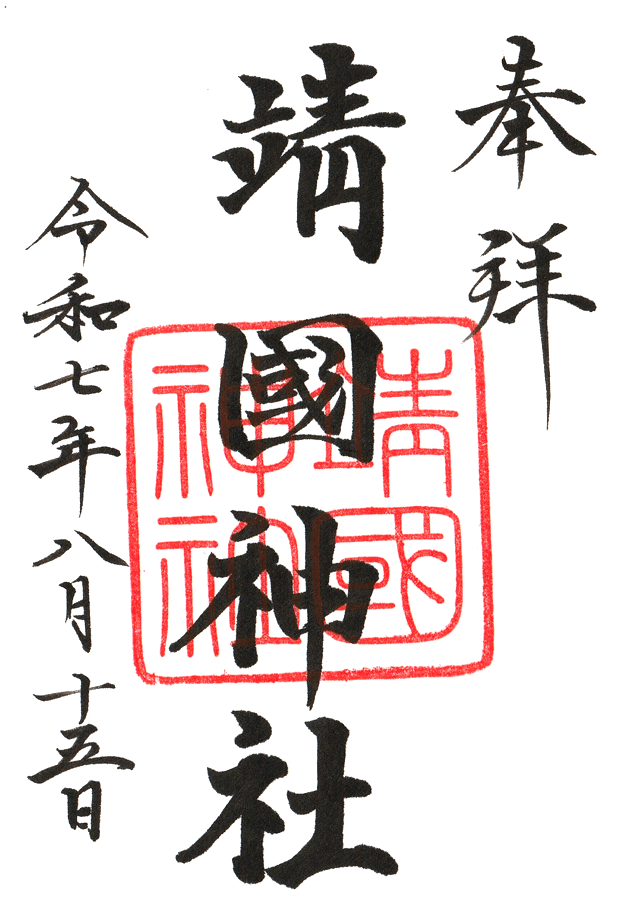 奉拝
靖國神社
令和七年八月十五日
靖國
神社